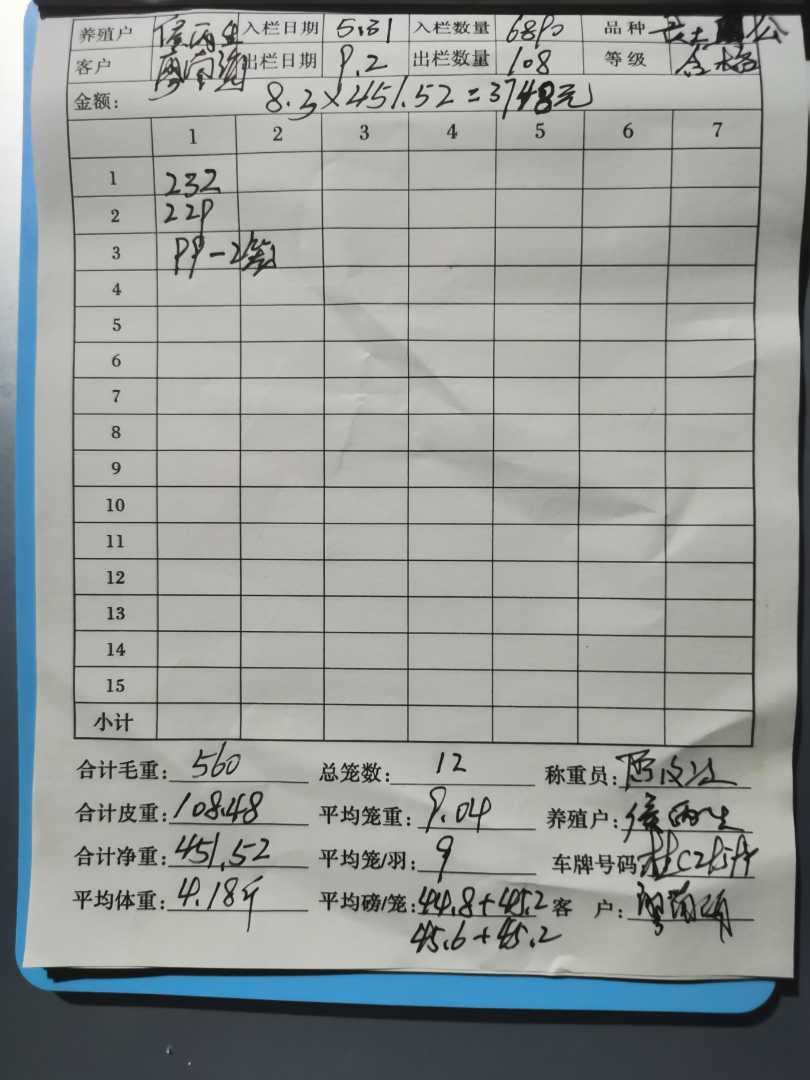 养殖户 入栏日期 5.31 入栏数量 6890 品种
客户 出栏日期 9.2 出栏数量 108 等级 合格
金额: 8.3×451.52=3748元
1 2 3 4 5 6 7
1 232
2 229
3 99-2笼
4
5
6
7
8
9
10
11
12
13
14
15
小计
合计毛重: 560 总笼数: 12 称重员:
合计皮重: 108.48 平均笼重: 9.04 养殖户:
合计净重: 451.52 平均笼/羽: 9 车牌号码
平均体重: 4.18斤 平均磅/笼: 44.8+45.2 客 户:
45.6+45.2